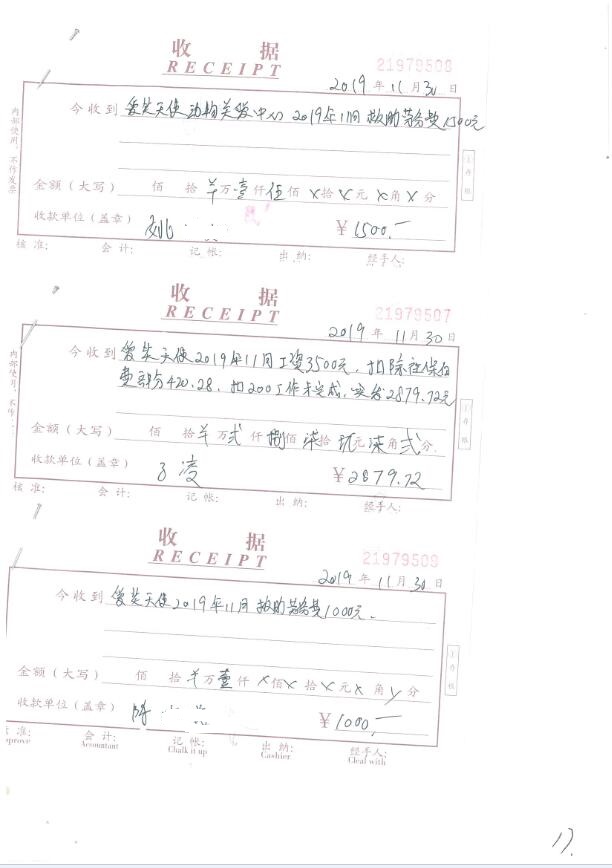 收 据
RECEIPT
21979508
2019 年 11 月 30 日
今收到 爱笑天使动物关爱中心 2019年11月救助劳务费1500元
内部使用,不作发票
金额(大写) 佰 拾 羊 万 壹 仟 伍 佰 X 拾 X 元 X 角 X 分
收款单位(盖章) 姚
¥ 1500.—
核 准: 会 计: 记 帐: 出 纳: 经手人:
收 据
RECEIPT
21979507
2019 年 11 月 30 日
今收到 爱笑天使2019年11月工资3500元,扣除社保自
费部分420.28,扣200工作未完成,实发2879.72元
内部使用,不作
金额(大写) 佰 拾 羊 万 弍 仟 捌 佰 柒 拾 玖 元 柒 角 弍 分
收款单位(盖章) 凌
¥ 2879.72
核 准: 会 计: 记 帐: 出 纳: 经手人:
收 据
RECEIPT
21979509
2019 年 11 月 30 日
今收到 爱笑天使2019年11月救助劳务费1000元.
金额(大写) 佰 拾 羊 万 壹 仟 X 佰 X 拾 X 元 X 角 X 分
收款单位(盖章)
¥ 1000.—
准: 会 计: 记 帐: 出 纳: 经手人:
prove Accountant Chalk it up Cashier Cleal with
17.